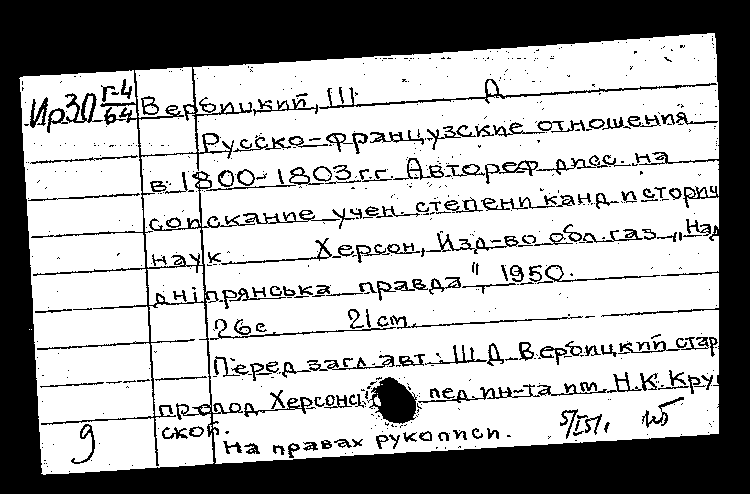 Ир30 Г-4/64 Вербицкий, Ш Д
Русско-французские отношения
в 1800-1803 г.г. Автореф дисс. на
соискание учен. степени канд историч
наук. Херсон, Изд-во обл. газ „Над
дніпрянська правда", 1950.
26 с. 21 ст.
Перед загл. авт.: Ш.Д. Вербицкий стар
препод. Херсонс пед. ин-та им. Н.К. Круп
ской.
9 На правах рукописи. 5/IV51г.